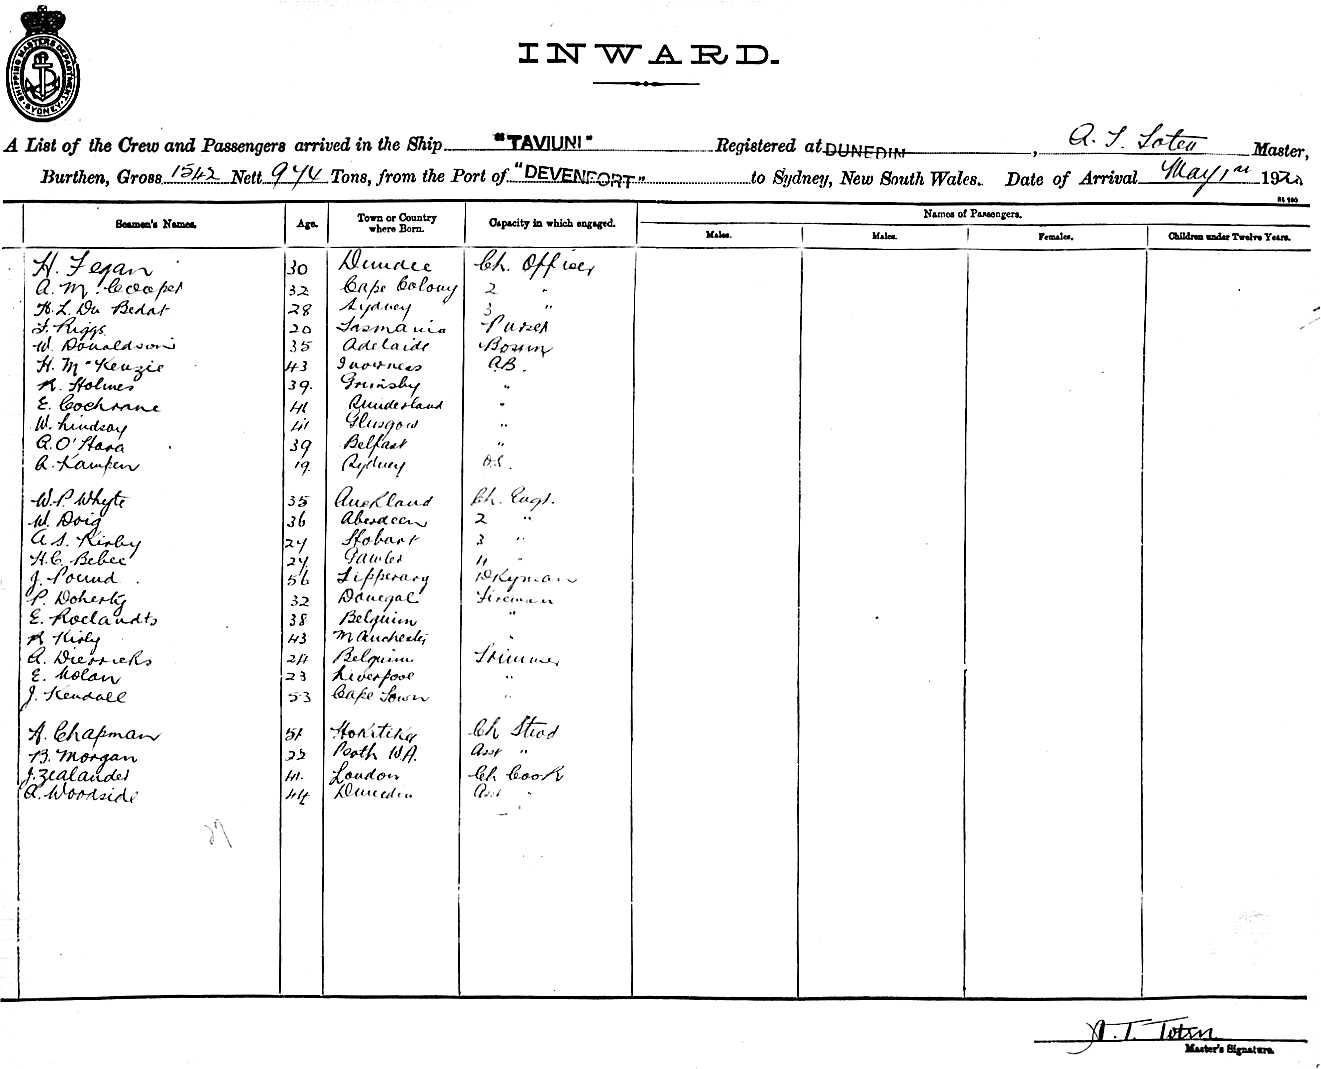 SHIPPING MASTERS DEPARTMENT SYDNEY
INWARD.
A List of the Crew and Passengers arrived in the Ship "TAVIUNI" Registered at DUNEDIN, A. T. Toten Master,
Burthen, Gross 1542 Nett 944 Tons, from the Port of "DEVENPORT" to Sydney, New South Wales. Date of Arrival May 1st 192
Seamen's Names. Age. Town or Country where Born. Capacity in which engaged. Names of Passengers.
Males. Males. Females. Children under Twelve Years.
H. Fegan 30 Dundee Ch. Officer
A. M. Cooper 32 Cape Colony 2 "
H. L. Du Bedat 28 Sydney 3 "
F. Riggs 20 Tasmania Purser
W. Donaldson 35 Adelaide Bosun
H. McKenzie 43 Inverness A.B.
R. Holmes 39. Grimsby "
E. Cochrane 41 Sunderland "
W. Lindsay 41 Glasgow "
A. O'Hara 39 Belfast "
A. Kampen 19. Sydney O.S.
W. P. Whyte 35 Auckland Ch. Engr.
W. Doig 36 Aberdeen 2 "
A. S. Kirby 24 Hobart 3 "
H. C. Bebee 24 Gawler 4 "
J. Pound 56 Tipperary Dkyman
P. Doherty 32 Donegal Fireman
E. Roelandts 38 Belgium "
R Kirby 43 Manchester "
A. Dierricks 24 Belgium Trimmer
E. Nolan 23 Liverpool "
J. Kendall 53 Cape Town "
A. Chapman 51 Hokitika Ch Stwd
B. Morgan 22 Perth WA. Asst "
J. Zealander 41. London Ch Cook
A. Woodside 44 Dunedin Asst "
A. T. Toten
Master's Signature.